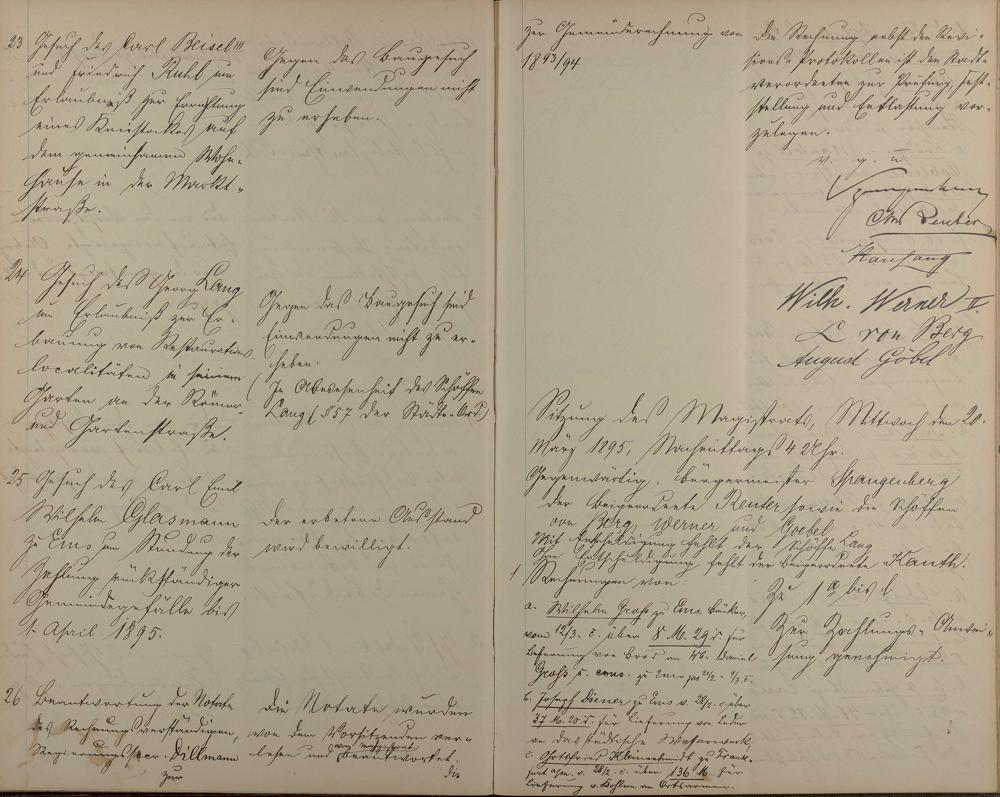 23 Gesuch des Carl Beisel III
und Friedrich Ruhl um
Erlaubniß zur Errichtung
eines Kniestockes auf
dem gemeinsamen Wohn-
hause in der Markt-
straße.
Gegen das Baugesuch
sind Einwendungen nicht
zu erheben.
24 Gesuch des Georg Lang
um Erlaubniß zur Er-
bauung von Restaurations-
localitäten in seinem
Garten an der Römer-
und Gartenstraße.
Gegen das Baugesuch sind
Einwendungen nicht zu er-
heben.
In Abwesenheit des Schöffen
Lang (§ 57 der Städte-Ord.)
25 Gesuch des Carl Emil
Wilhelm Glasmann
zu Ems um Stundung der
Zahlung rückständiger
Gemeindegefälle bis
1. April 1895.
Der erbetene Ausstand
wird bewilligt.
26 Beantwortung der Notate
des Rechnungsverständigen,
Dillmann
zur
Die Notate wurden
von dem Vorsitzenden ver-
lesen und vom Magistrat beantwortet.
die
zur Gemeinderechnung von
1893/94
Die Rechnung nebst den Revi-
sions-Protokollen ist den Stadt-
verordneten zur Prüfung, Fest-
stellung und Entlastung vor-
zulegen.
v. g. u
Spangenberg
Reuter
Wilh. Werner II.
L von Berg
August Göbel
Sitzung des Magistrats, Mittwoch den 20.
März 1895, Nachmittags 4 Uhr.
Gegenwärtig: Bürgermeister Spangenberg
der Beigeordnete Reuter sowie die Schöffen
von Berg, Werner und Goebel.
Mit Entschuldigung fehlt der Schöffe Lang
Ohne Entschuldigung fehlt der Beigeordnete Kauth.
1 Rechnungen von:
a. Wilhelm Groß zu Ems, Bäcker,
vom 12/3. c. über 8 M. 29 d. für
Lieferung von Brod an Daniel
Groß zu Ems pro
b. Joseph Diener zu Ems v. c. über
37 M. 20 d. für Lieferung von Leder
an das städtische Wasserwerk,
c. Gottfried Kleinschmidt zu Frank-
furt a/m. v. c. über 136 M. für
Lieferung v. Kohlen an Ortsarmen.
Zu 1 a bis d
Zur Zahlungs-Anwei-
sung genehmigt.